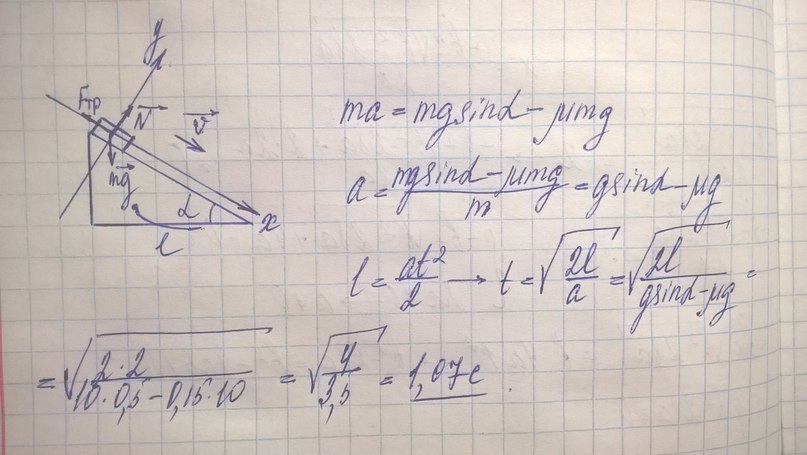 y
Fтр
N
v
mg
α
x
l
ma = mgsinα - μmg
a = mgsinα - μmg / m = gsinα - μg
l = at² / 2 → t = √2l / a = √2l / gsinα - μg =
= √2·2 / 10·0,5 - 0,15·10 = √4 / 3,5 = 1,07с